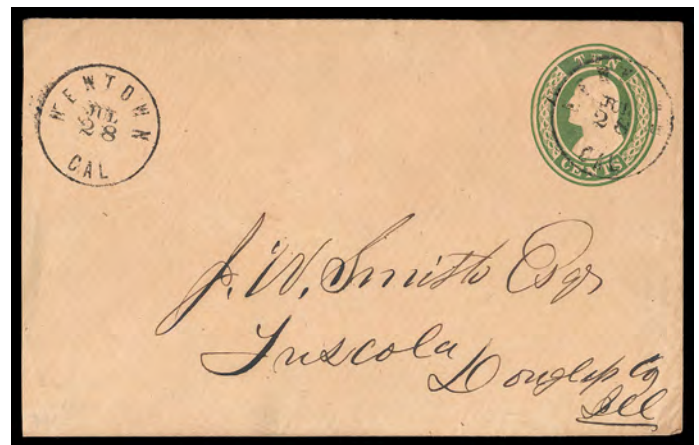 NEWTOWN
JUL
28
CAL
TEN
CENTS
JUL
28
CAL
J. W. Smith Esqr
Tuscola
Douglass Co
Ill